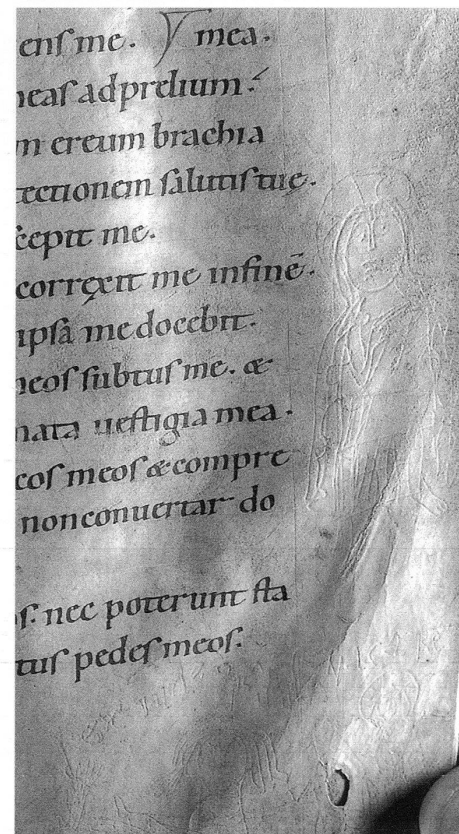 enſ me. Y mea.
meaſ ad prelium:
m ereum brachia
tectionem ſalutiſ tue.
ſcepit me.
correxit me infinē.
ipſa me docebit.
meoſ ſubtuſ me. &
mata ueſtigia mea.
coſ meoſ & compre
non conuertar do
oſ. nec poterunt ſta
tuſ pedeſ meoſ.